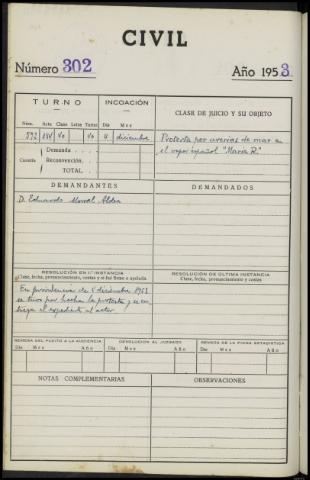 CIVIL
Número 302
Año 1953
TURNO
INCOACIÓN
CLASE DE JUICIO Y SU OBJETO
Núm. Acta Clase Letra Turno Día Mes
592 Vo Vo 4 diciembre
Protesta por averias de mar en
el vapor español "Maria R."
Cuantía
Demanda
Reconvención
TOTAL
DEMANDANTES
DEMANDADOS
D. Eduardo Aldea
RESOLUCIÓN EN 1.ª INSTANCIA
Clase, fecha, pronunciamiento, costas y si fué firme o apelada
RESOLUCIÓN DE ÚLTIMA INSTANCIA
Clase, fecha, pronunciamiento y costas
En providencia de 5 diciembre 1953
se tuvo por hecha la protesta y se en-
trega el expediente al actor.
REMESA DEL PLEITO A LA AUDIENCIA
DEVOLUCIÓN AL JUZGADO
REMESA DE LA FICHA ESTADÍSTICA
Día Mes Año
Día Mes Año
Día Mes Año
NOTAS COMPLEMENTARIAS
OBSERVACIONES